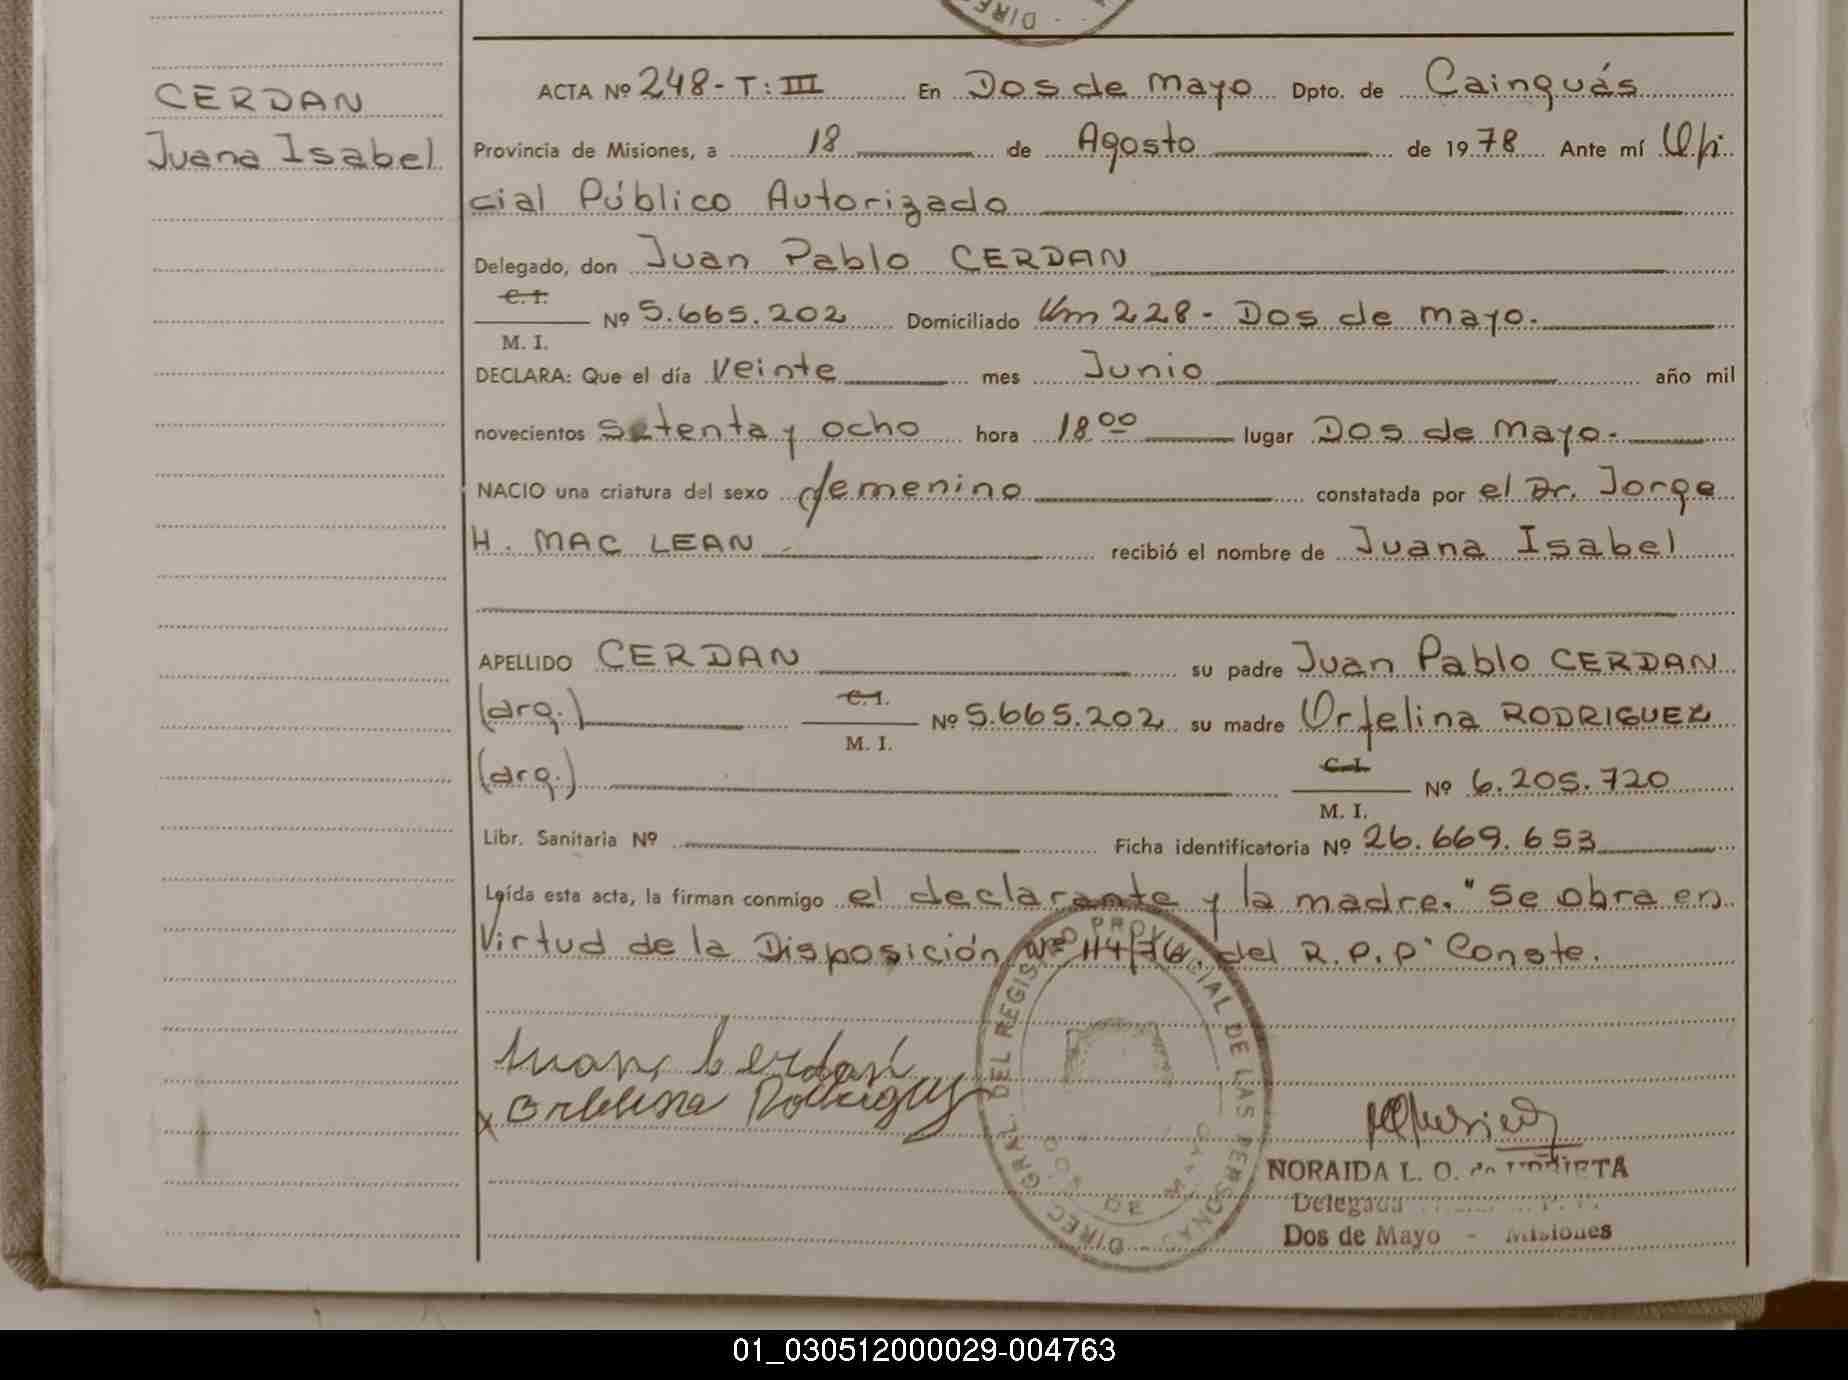 DIREC
CERDAN
Juana Isabel
ACTA Nº 248 - T: III En Dos de Mayo Dpto. de Cainguás
Provincia de Misiones, a 18 de Agosto de 1978 Ante mí Ofi
cial Público Autorizado
Delegado, don Juan Pablo CERDAN
C. I.
M. I. Nº 5.665.202 Domiciliado Km 228 - Dos de Mayo.
DECLARA: Que el día Veinte mes Junio año mil
novecientos setenta y ocho hora 18 00 lugar Dos de Mayo.
NACIO una criatura del sexo femenino constatada por el Dr. Jorge
H. MAC LEAN recibió el nombre de Juana Isabel
APELLIDO CERDAN su padre Juan Pablo CERDAN
(arg.) C. I. M. I. Nº 5.665.202 su madre Orfelina RODRIGUEZ
(arg.) C. I. M. I. Nº 6.205.720
Libr. Sanitaria Nº Ficha identificatoria Nº 26.669.653
Leída esta acta, la firman conmigo el declarante y la madre. "Se obra en
Virtud de la Disposición Nº 114/76. del R.P.P" Conste.
Juan Cerdan
x Orfelina Rodriguez
DIREC. GRAL. DEL REGISTRO PROVINCIAL DE LAS PERSONAS
DOS DE MAYO
NORAIDA L. O. de
Delegada
Dos de Mayo - Misiones
01_030512000029-004763